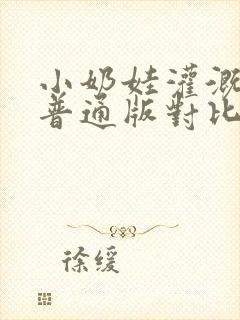 小奶娃灌溉
普通版對比
徐缓